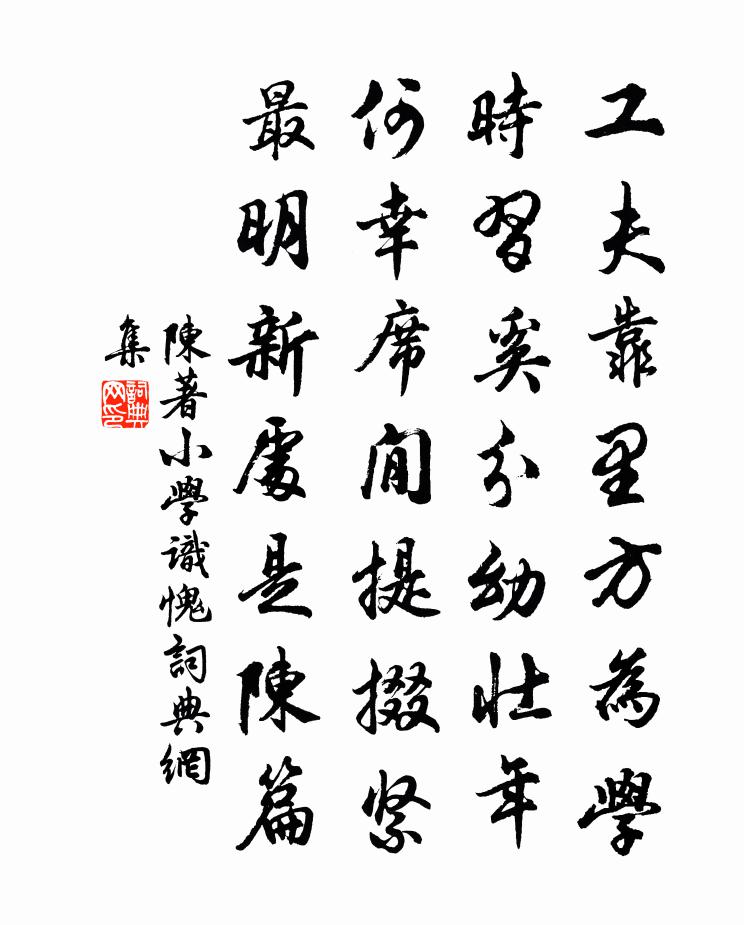 工夫靠里方為學
時習奚分幼壯年
何幸席間提掇緊
最明新處是陳篇
陳著小學識愧詞典網
集
詞典網印